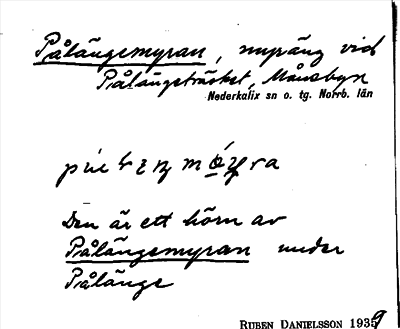 Pålängsmyran, myräng vid
Pålängeträsket, Månsbyn
Nederkalix sn o. tg. Norrb. län
Den är ett hörn av
Pålängsmyran under
Pålänge
RUBEN DANIELSSON 1939